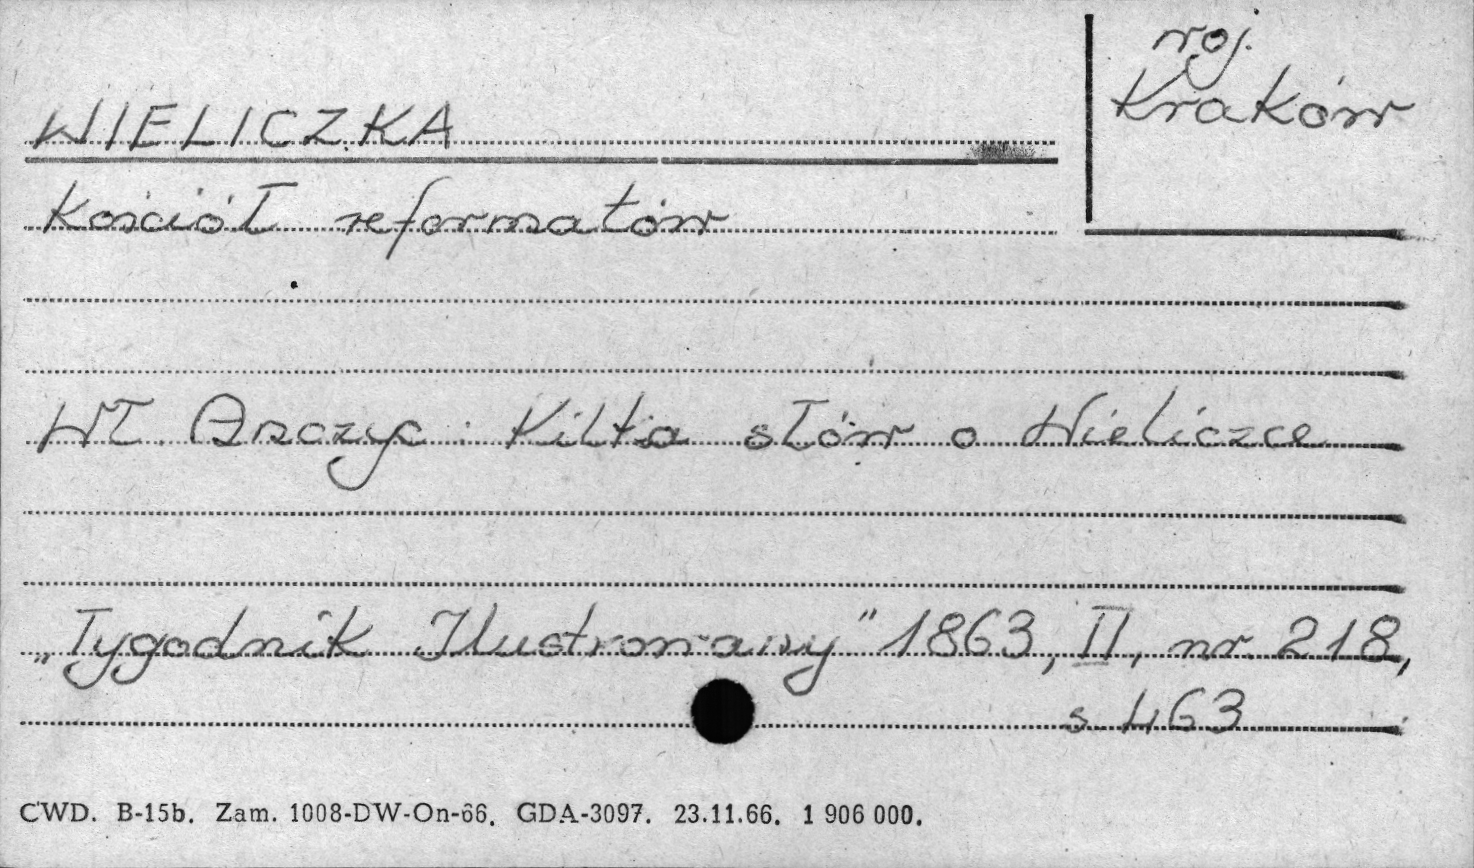 woj.
Kraków
WIELICZKA
Kościół reformatów
Wł. Anczyc : Kilka słów o Wieliczce
„Tygodnik Ilustrowany" 1863, II, nr. 218,
s 463
CWD. B-15b. Zam. 1008-DW-On-66. GDA-3097. 23.11.66. 1 906 000.